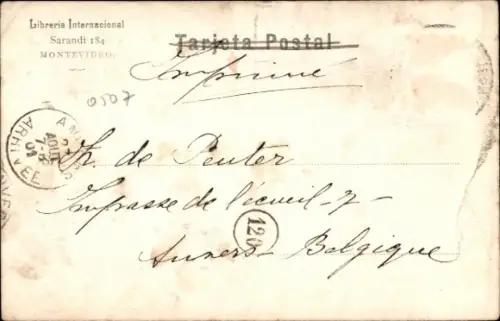 Libreria Internacional
Sarandi 184
MONTEVIDEO.
Tarjeta Postal
Imprimé
0507
ARRIVEE
AOUT
7-8
04
Th. de Peuter
Impasse de l'écueil - 7 -
120
Anvers - Belgique